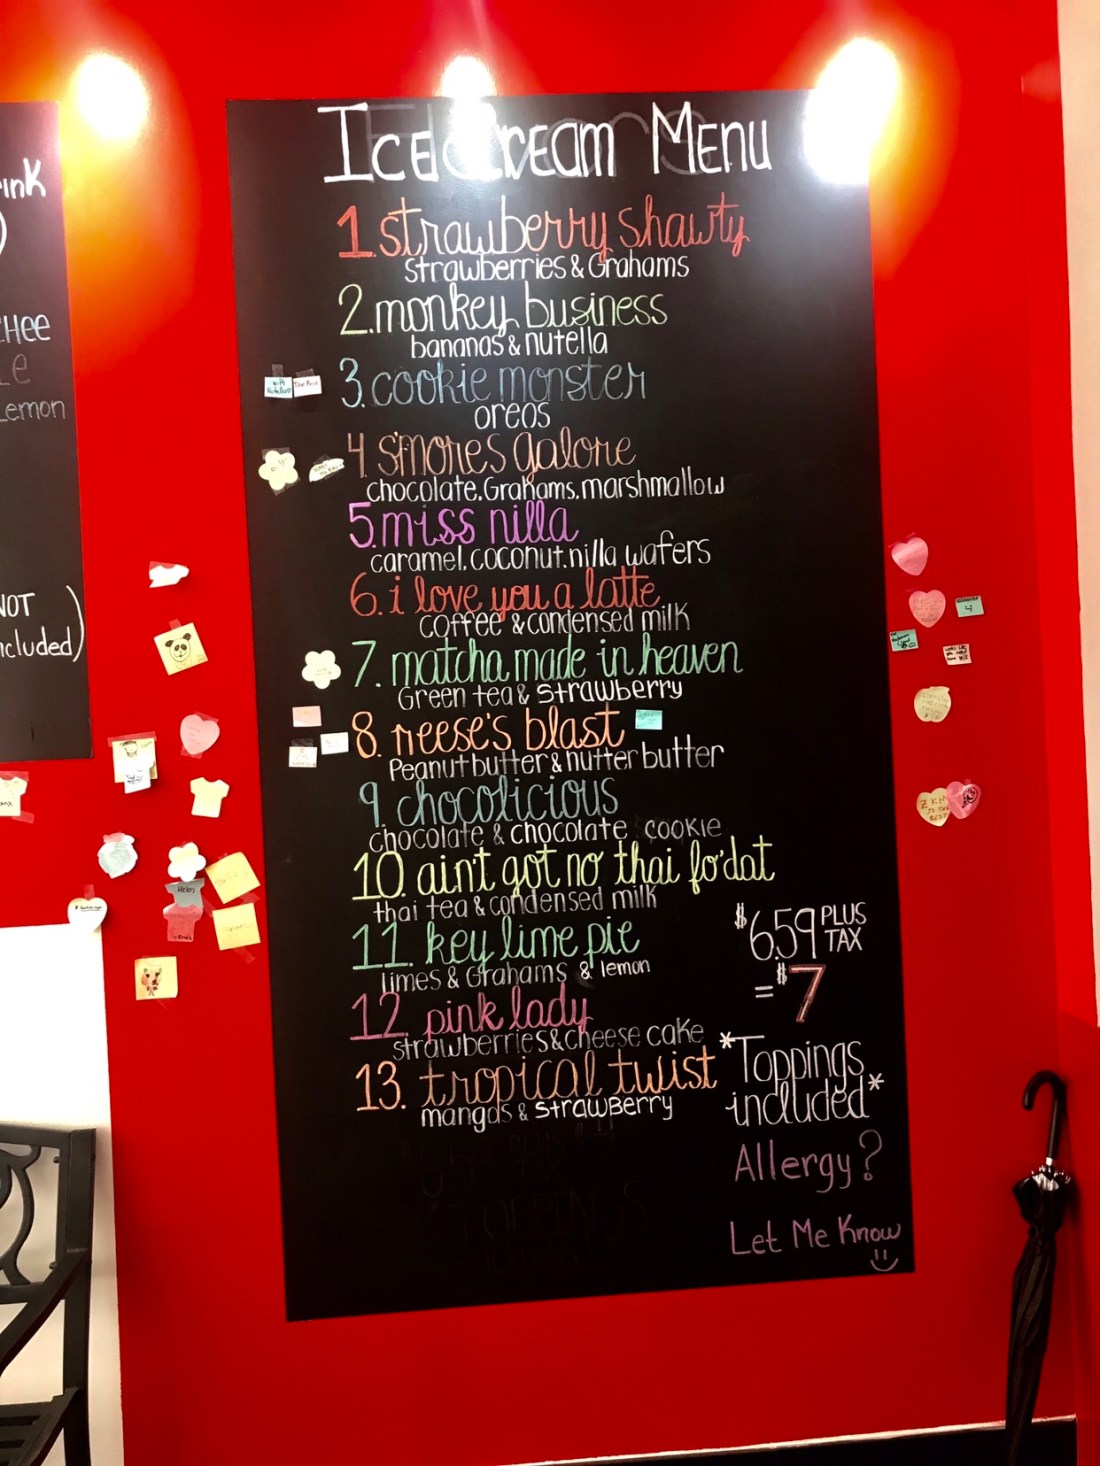 Ice Cream Menu
1. strawberry shawty
strawberries & Grahams
2. monkey business
bananas & nutella
3. cookie monster
oreos
4. s'mores galore
chocolate, Grahams, marshmallow
5. miss nilla
caramel, coconut, nilla wafers
6. i love you a latte
coffee & condensed milk
7. matcha made in heaven
Green tea & strawberry
8. reese's blast
Peanut butter & nutter butter
9. chocolicious
chocolate & chocolate cookie
10. ain't got no thai fo'dat
thai tea & condensed milk
11. key lime pie
limes & Grahams & lemon
12. pink lady
strawberries & cheese cake
13. tropical twist
mangos & strawberry
$6.59 PLUS TAX
= $7
*Toppings
included*
Allergy?
Let Me Know
ink
)
CHEE
Le
Lemon
NOT
ncluded)